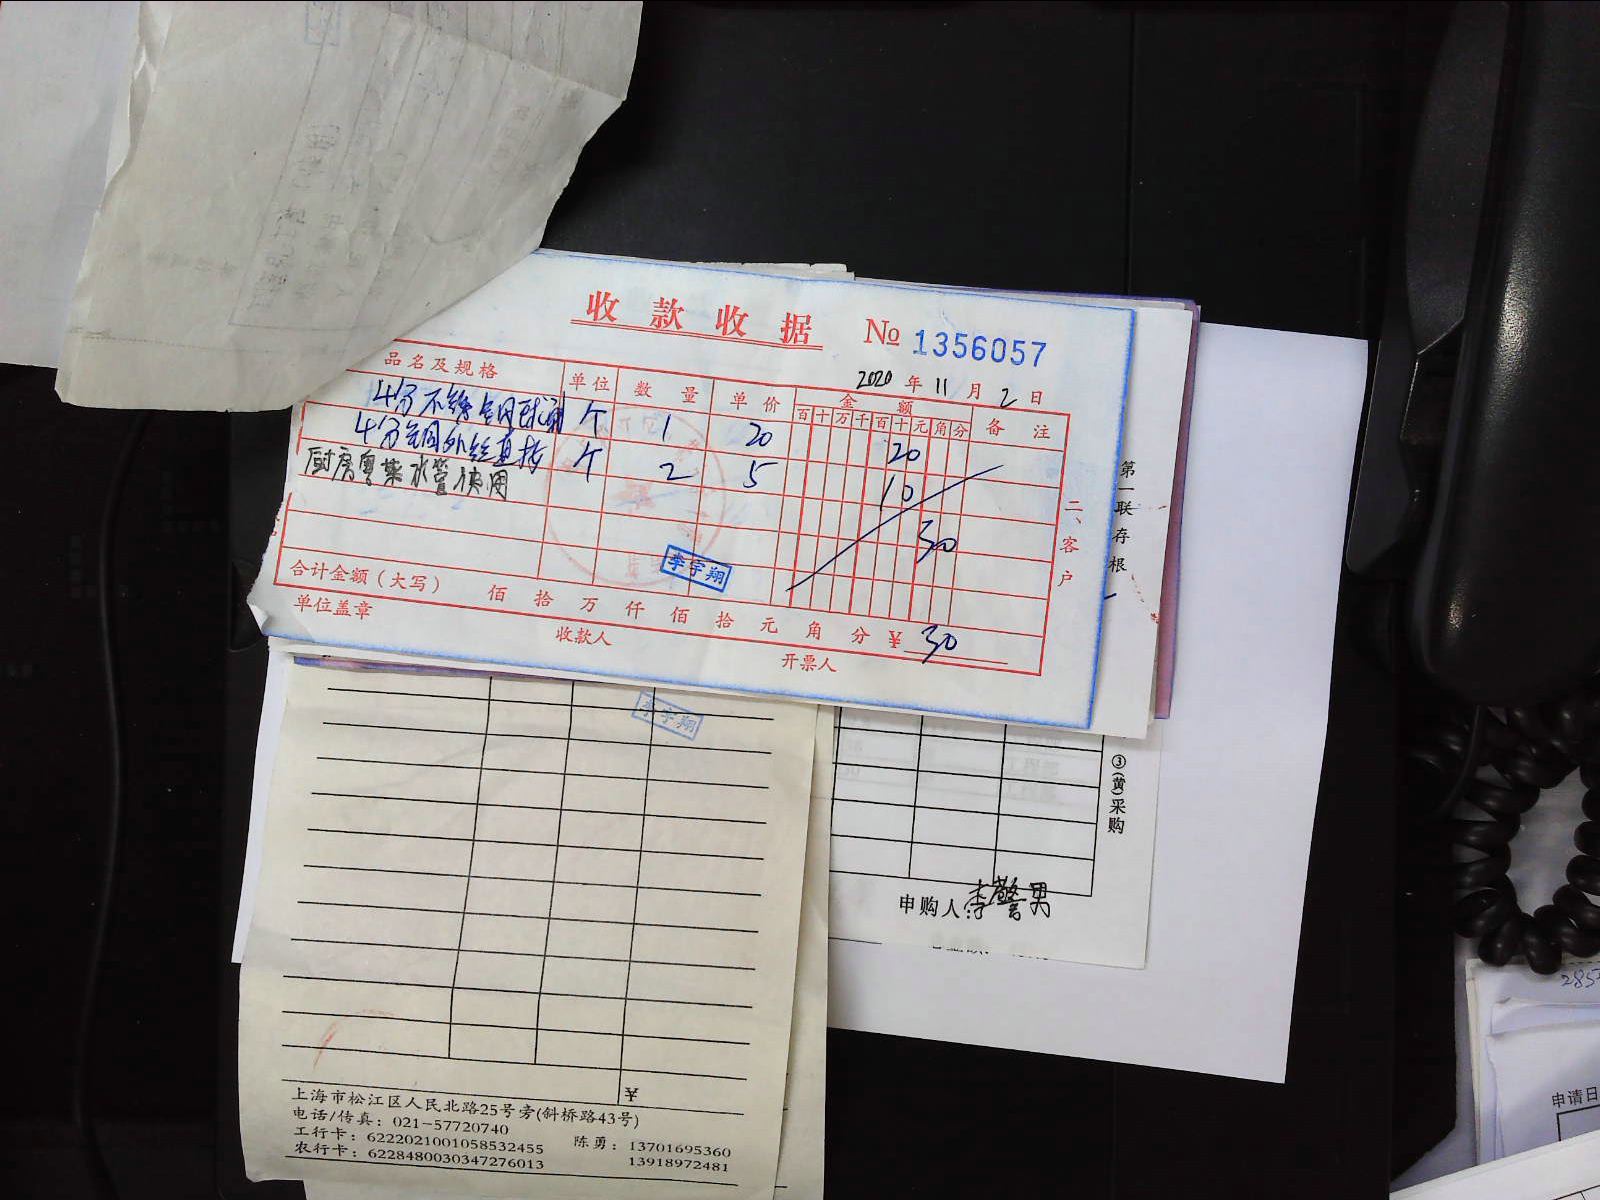 收款收据 № 1356057
2020 年 11 月 2 日
品名及规格 单位 数量 单价 金额 备注
百十万千百十元角分
4分不锈钢球阀 个 1 20 20
4分铜外丝直接 个 2 5 10
厨房粤菜水管使用
30
李宇翔
合计金额（大写） 佰 拾 万 仟 佰 拾 元 角 分 ¥ 30
单位盖章 收款人 开票人
二、客户
第一联存根
李宇翔
③(黄)采购
申购人: 李警男
¥
上海市松江区人民北路25号旁(斜桥路43号)
电话/传真：021-57720740
工行卡：6222021001058532455 陈勇：13701695360
农行卡：6228480030347276013 13918972481
申请日